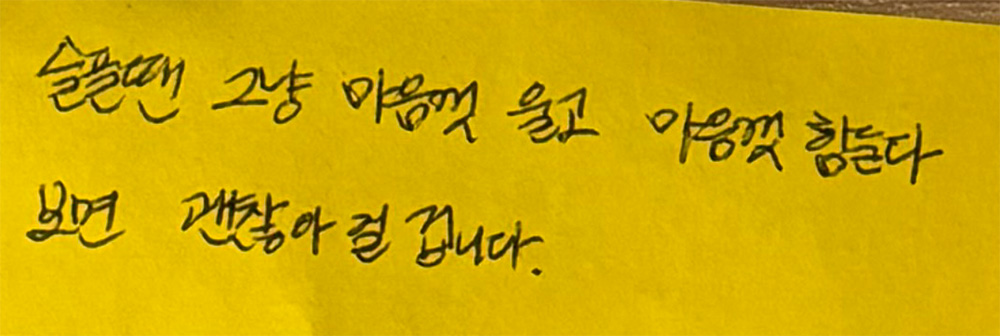 슬플땐 그냥 마음껏 울고 마음껏 힘든다
보면 괜찮아 걸 겁니다.